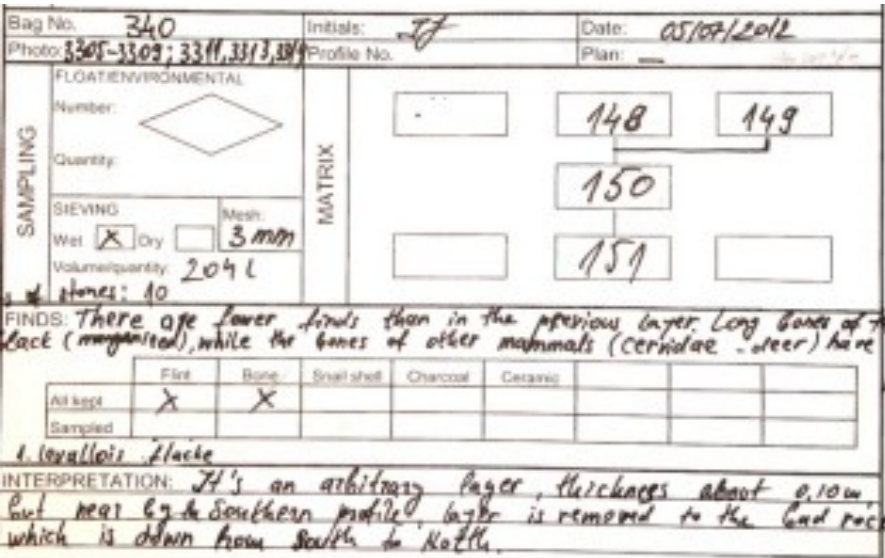 Bag No. 340 Initials: Date: 05/07/2012
Photo: 3305-3309; 3311, 3313, Profile No. Plan: —
FLOAT/ENVIRONMENTAL
Number:
148 149
Quantity:
SAMPLING
MATRIX
150
SIEVING
Mesh:
Wet X Dry 3 mm
151
Volume/quantity: 204 l
stones: 10
FINDS: There are fewer finds than in the previous layer. Long bones of
(manganised), while the bones of other mammals (Cervidae - deer) have
Flint Bone Snail shell Charcoal Ceramic
All kept X X
Sampled
1. levallois flacke
INTERPRETATION: It's an arbitrary layer, thickness about 0,10m
but near Southern profile layer is removed to the
which is down from South to North.